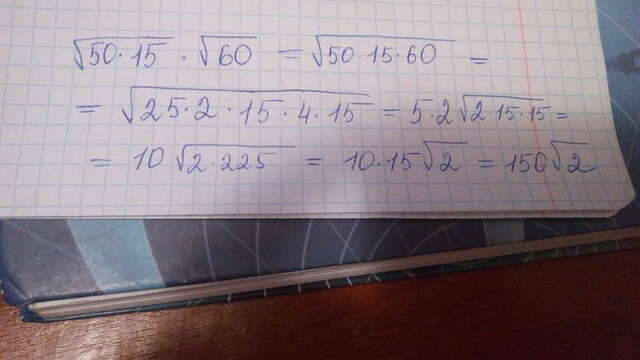 √50·15 · √60 = √50·15·60 =
= √25·2·15·4·15 = 5·2√2·15·15 =
= 10√2·225 = 10·15√2 = 150√2